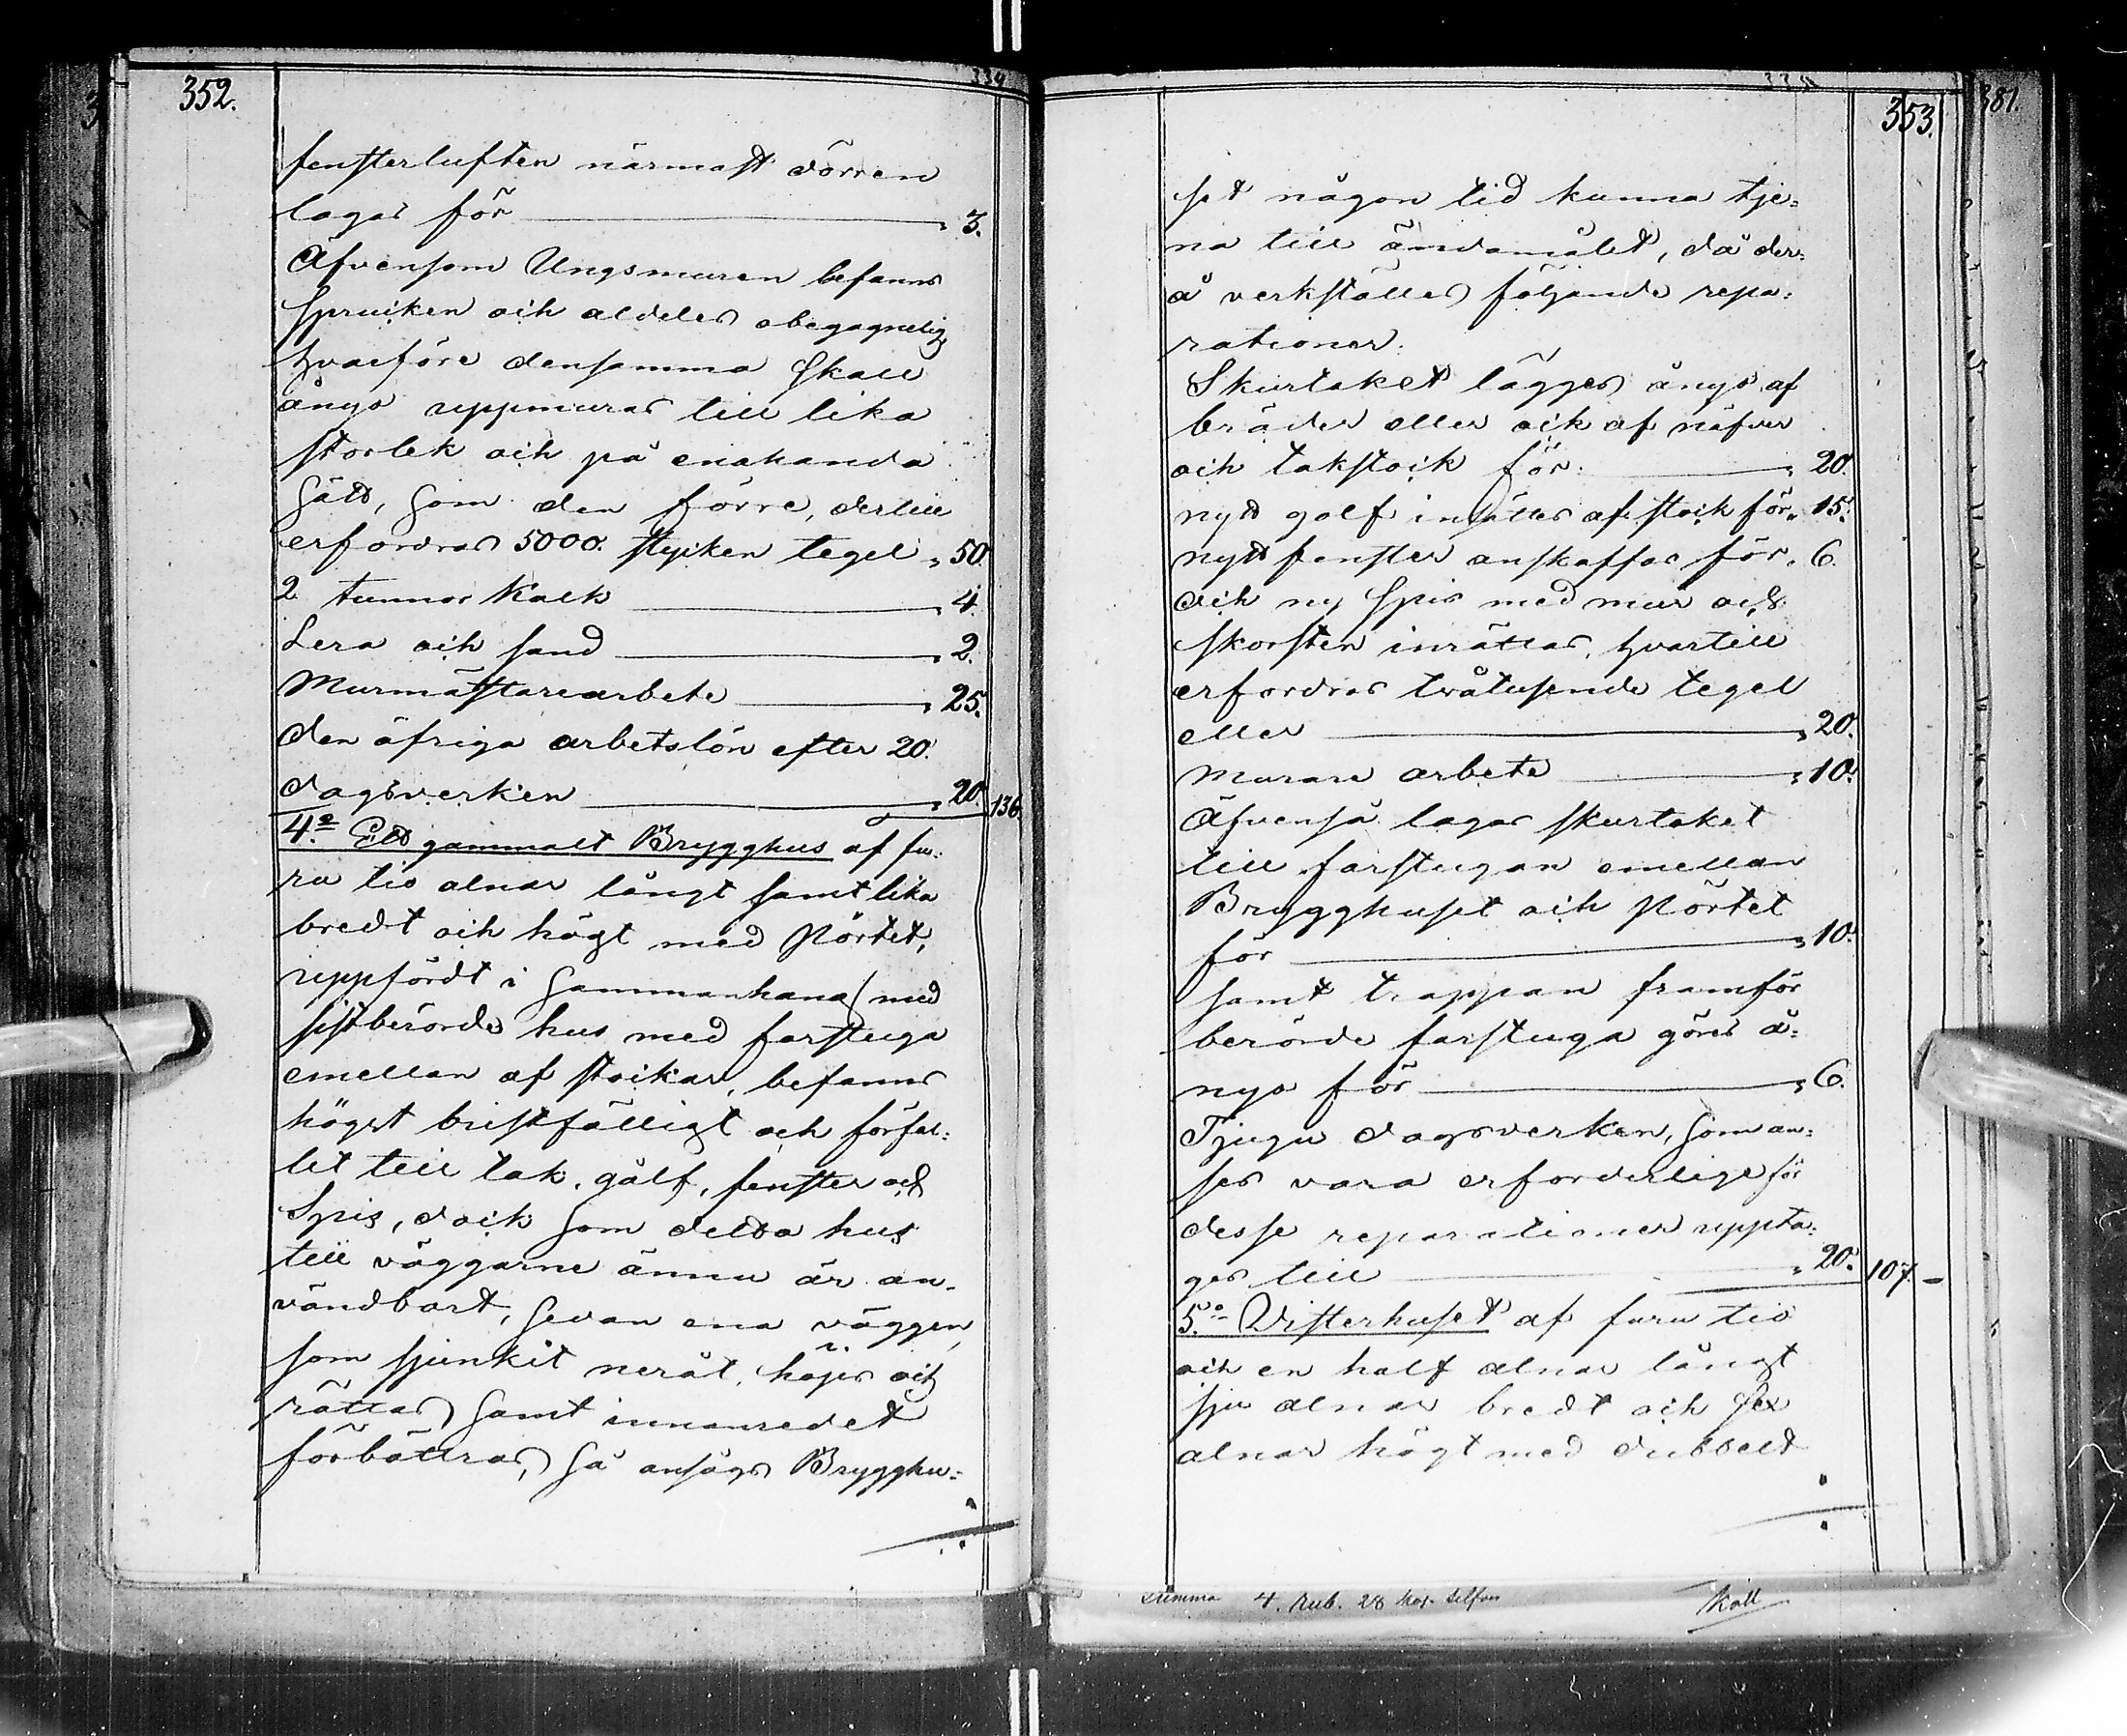 352.
334
fensterluften närmast dörren
lagas för " 3.
Äfvensom Ungsmuren befanns
sprucken och aldeles obegagnelig
hvarföre densamma skall
ånyo uppmuras till lika
storlek och på enahanda
sätt, som den förre, dertill
erfordras 5000. stycken tegel " 50.
2 tunnor Kalk " 4.
Lera och sand " 2.
Murmästarearbete " 25.
den öfriga arbetslön efter 20.
dagsverken " 20. 136.
4o Ett gammalt Brygghus af fu-
ru tio alnar långt samt lika
bredt och högt med Pörtet,
uppfördt i sammanhang med
sistberörde hus med farstuga
emellan af stockar, befanns
högst bristfälligt och förfal-
let till tak, gålf, fenster och
Spis, dock som detta hus
till väggarne ännu är an-
vändbart, sedan ena väggen,
som sjunkit neråt, höjes och
rättas samt innanredet
förbättras, så ansågs Brygghu-
353.
381.
set någon tid kunna tje-
na till ändamålet, då der-
å verkställes följande repa-
rationer.
Skurtaket lägges ånyo af
bräder eller ock af näfver
och takstock för " 20.
nytt golf insättes af stock för " 15.
nytt fenster anskaffas för " 6.
och ny spis med mur och
skorsten inrättas, hvartill
erfordras tvåtusende tegel
eller " 20.
Murare arbete " 10.
Äfvenså lagas skurtaket
till farstugan emellan
Brygghuset och Pörtet
för " 10.
samt trappan framför
berörde farstuga göres å-
nyo för " 6.
Tjugu dagsverken, som an-
ses vara erforderlige för
desse reparationer uppta-
ges till " 20. 107. -
5o Visterhuset af furu tio
och en half alnar långt
sju alnar bredt och sex
alnar högt med dubbelt
summa 4. Rub. 28 kop. silfver